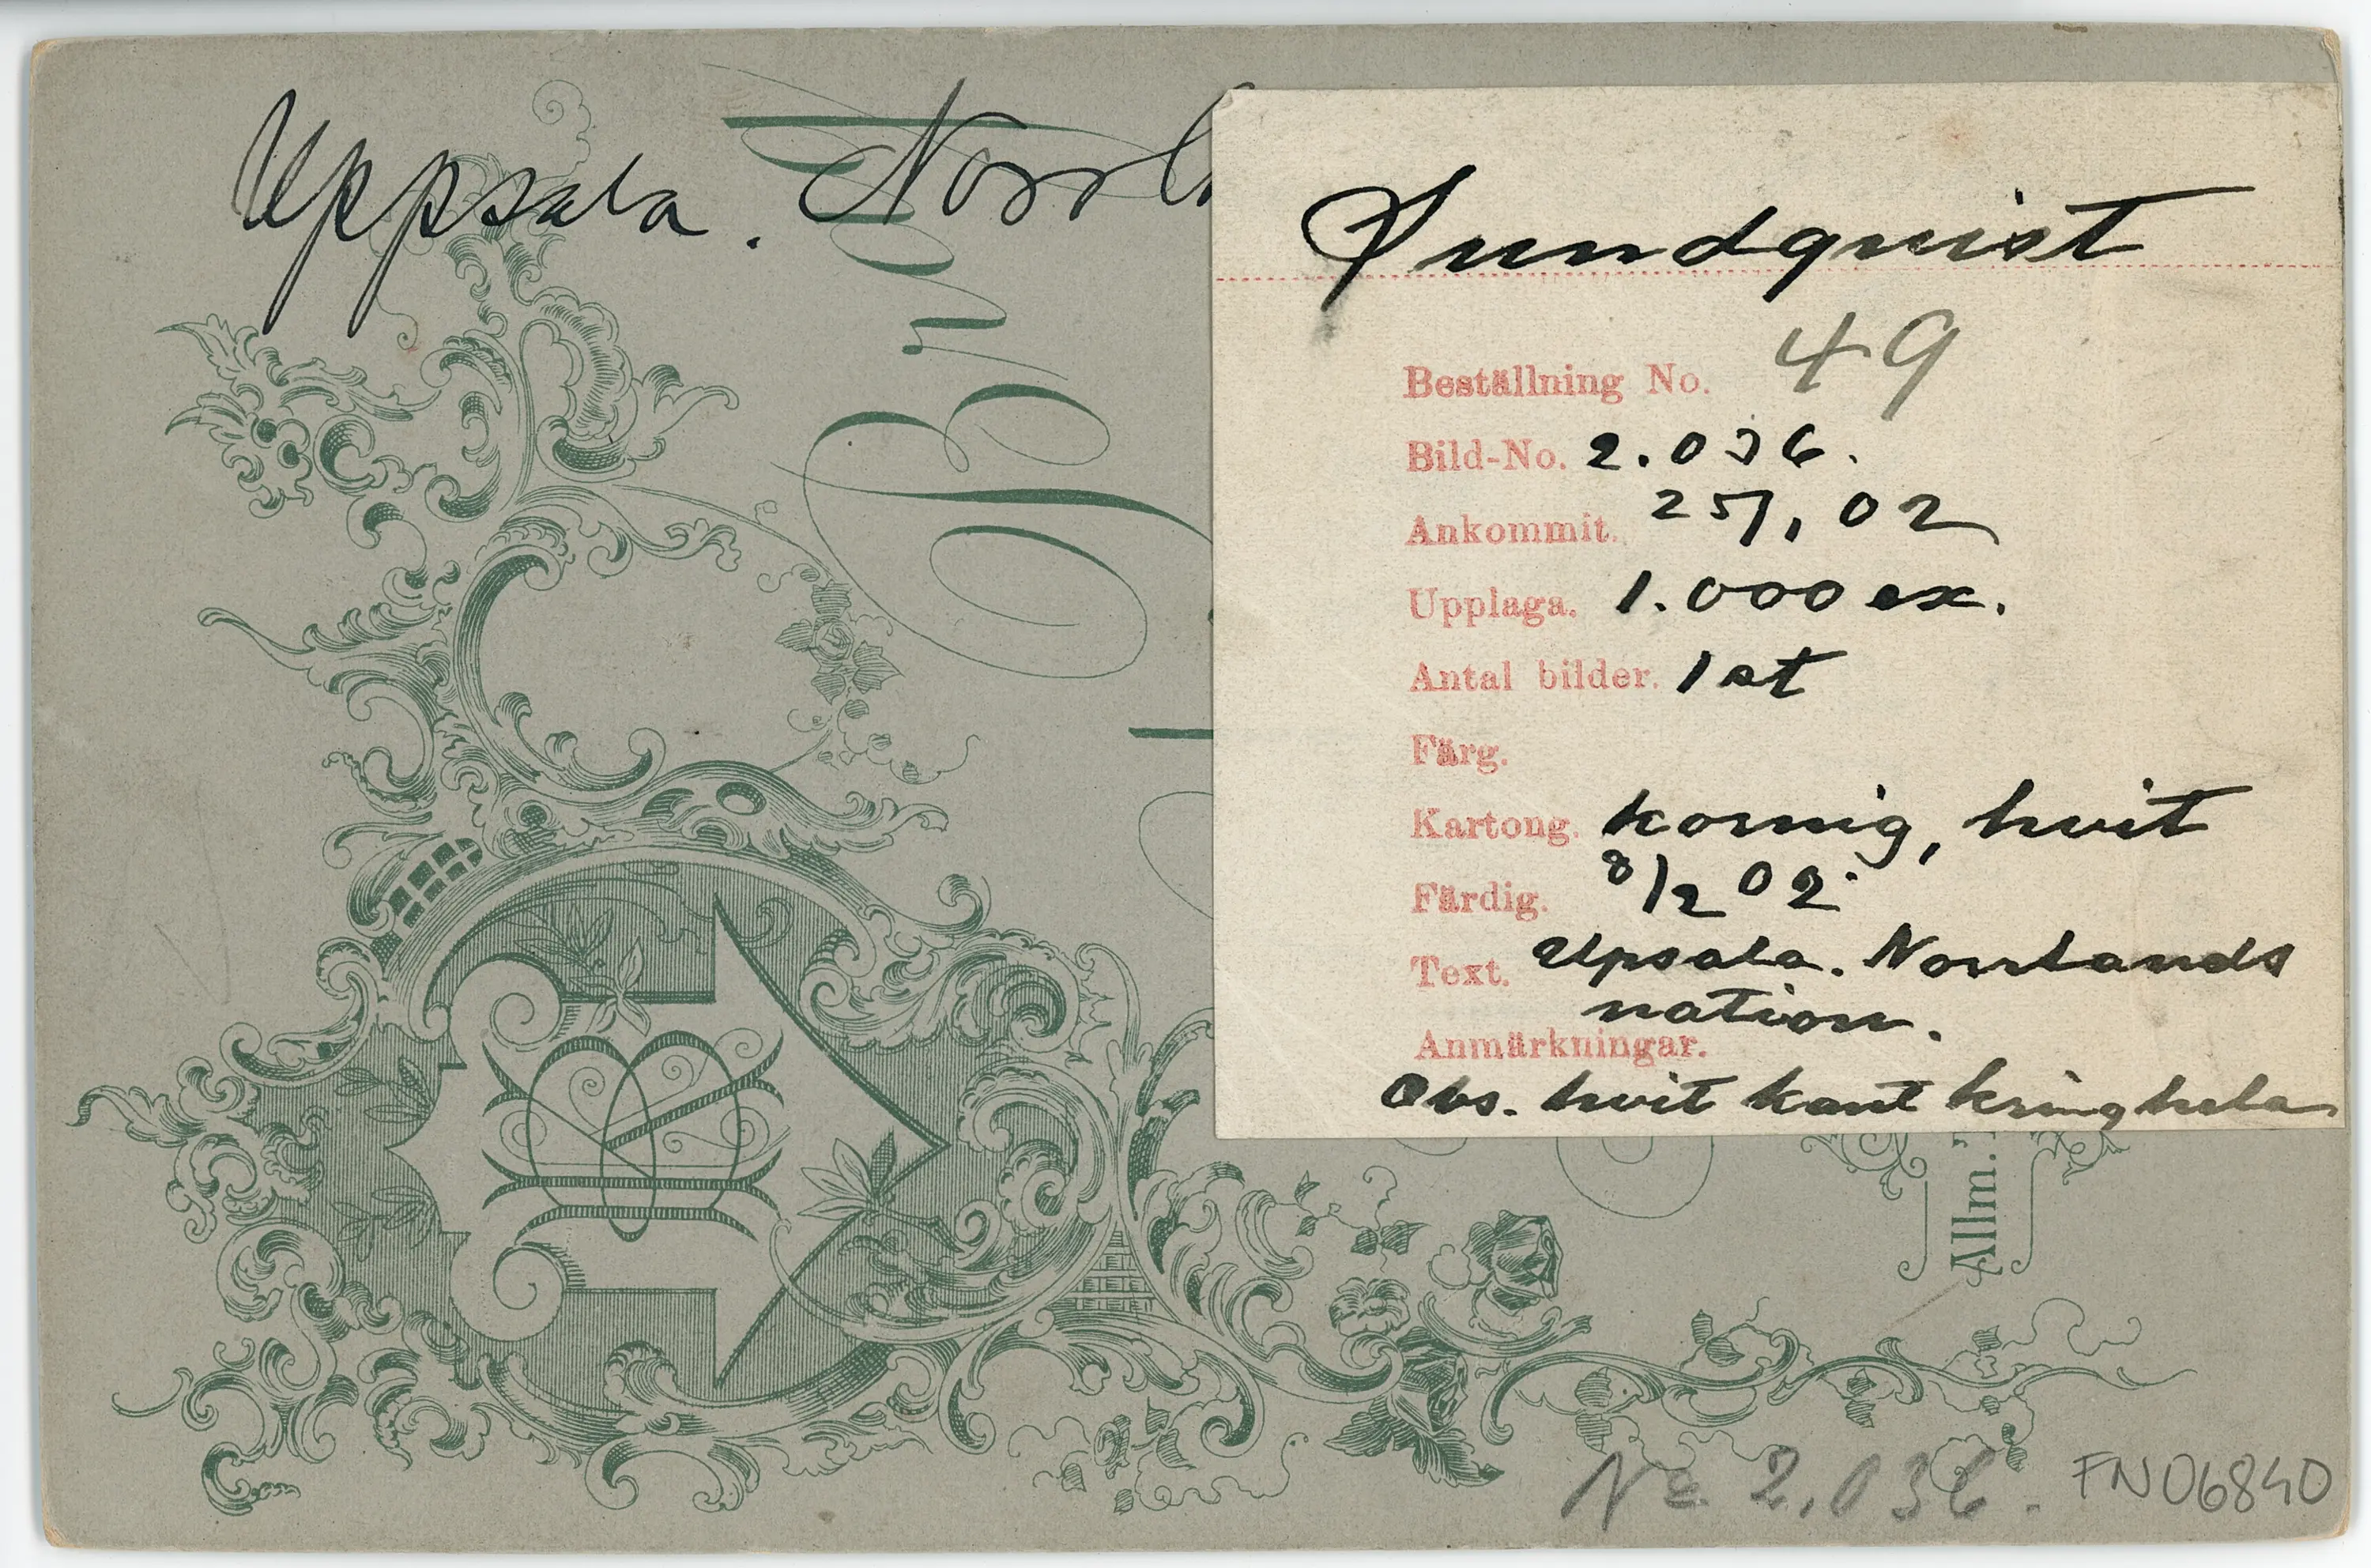 Uppsala. Norrl
Sundquist
Beställning No. 49
Bild-No. 2.036.
Ankommit. 25/1 02
Upplaga. 1.000 ex.
Antal bilder. 1 st
Färg.
Kartong. kornig, hvit
Färdig. 8/2 02.
Text. Upsala. Norrlands
nation.
Anmärkningar.
Obs. hvit kant kring hela
Allm.
No 2.036.
FN06840